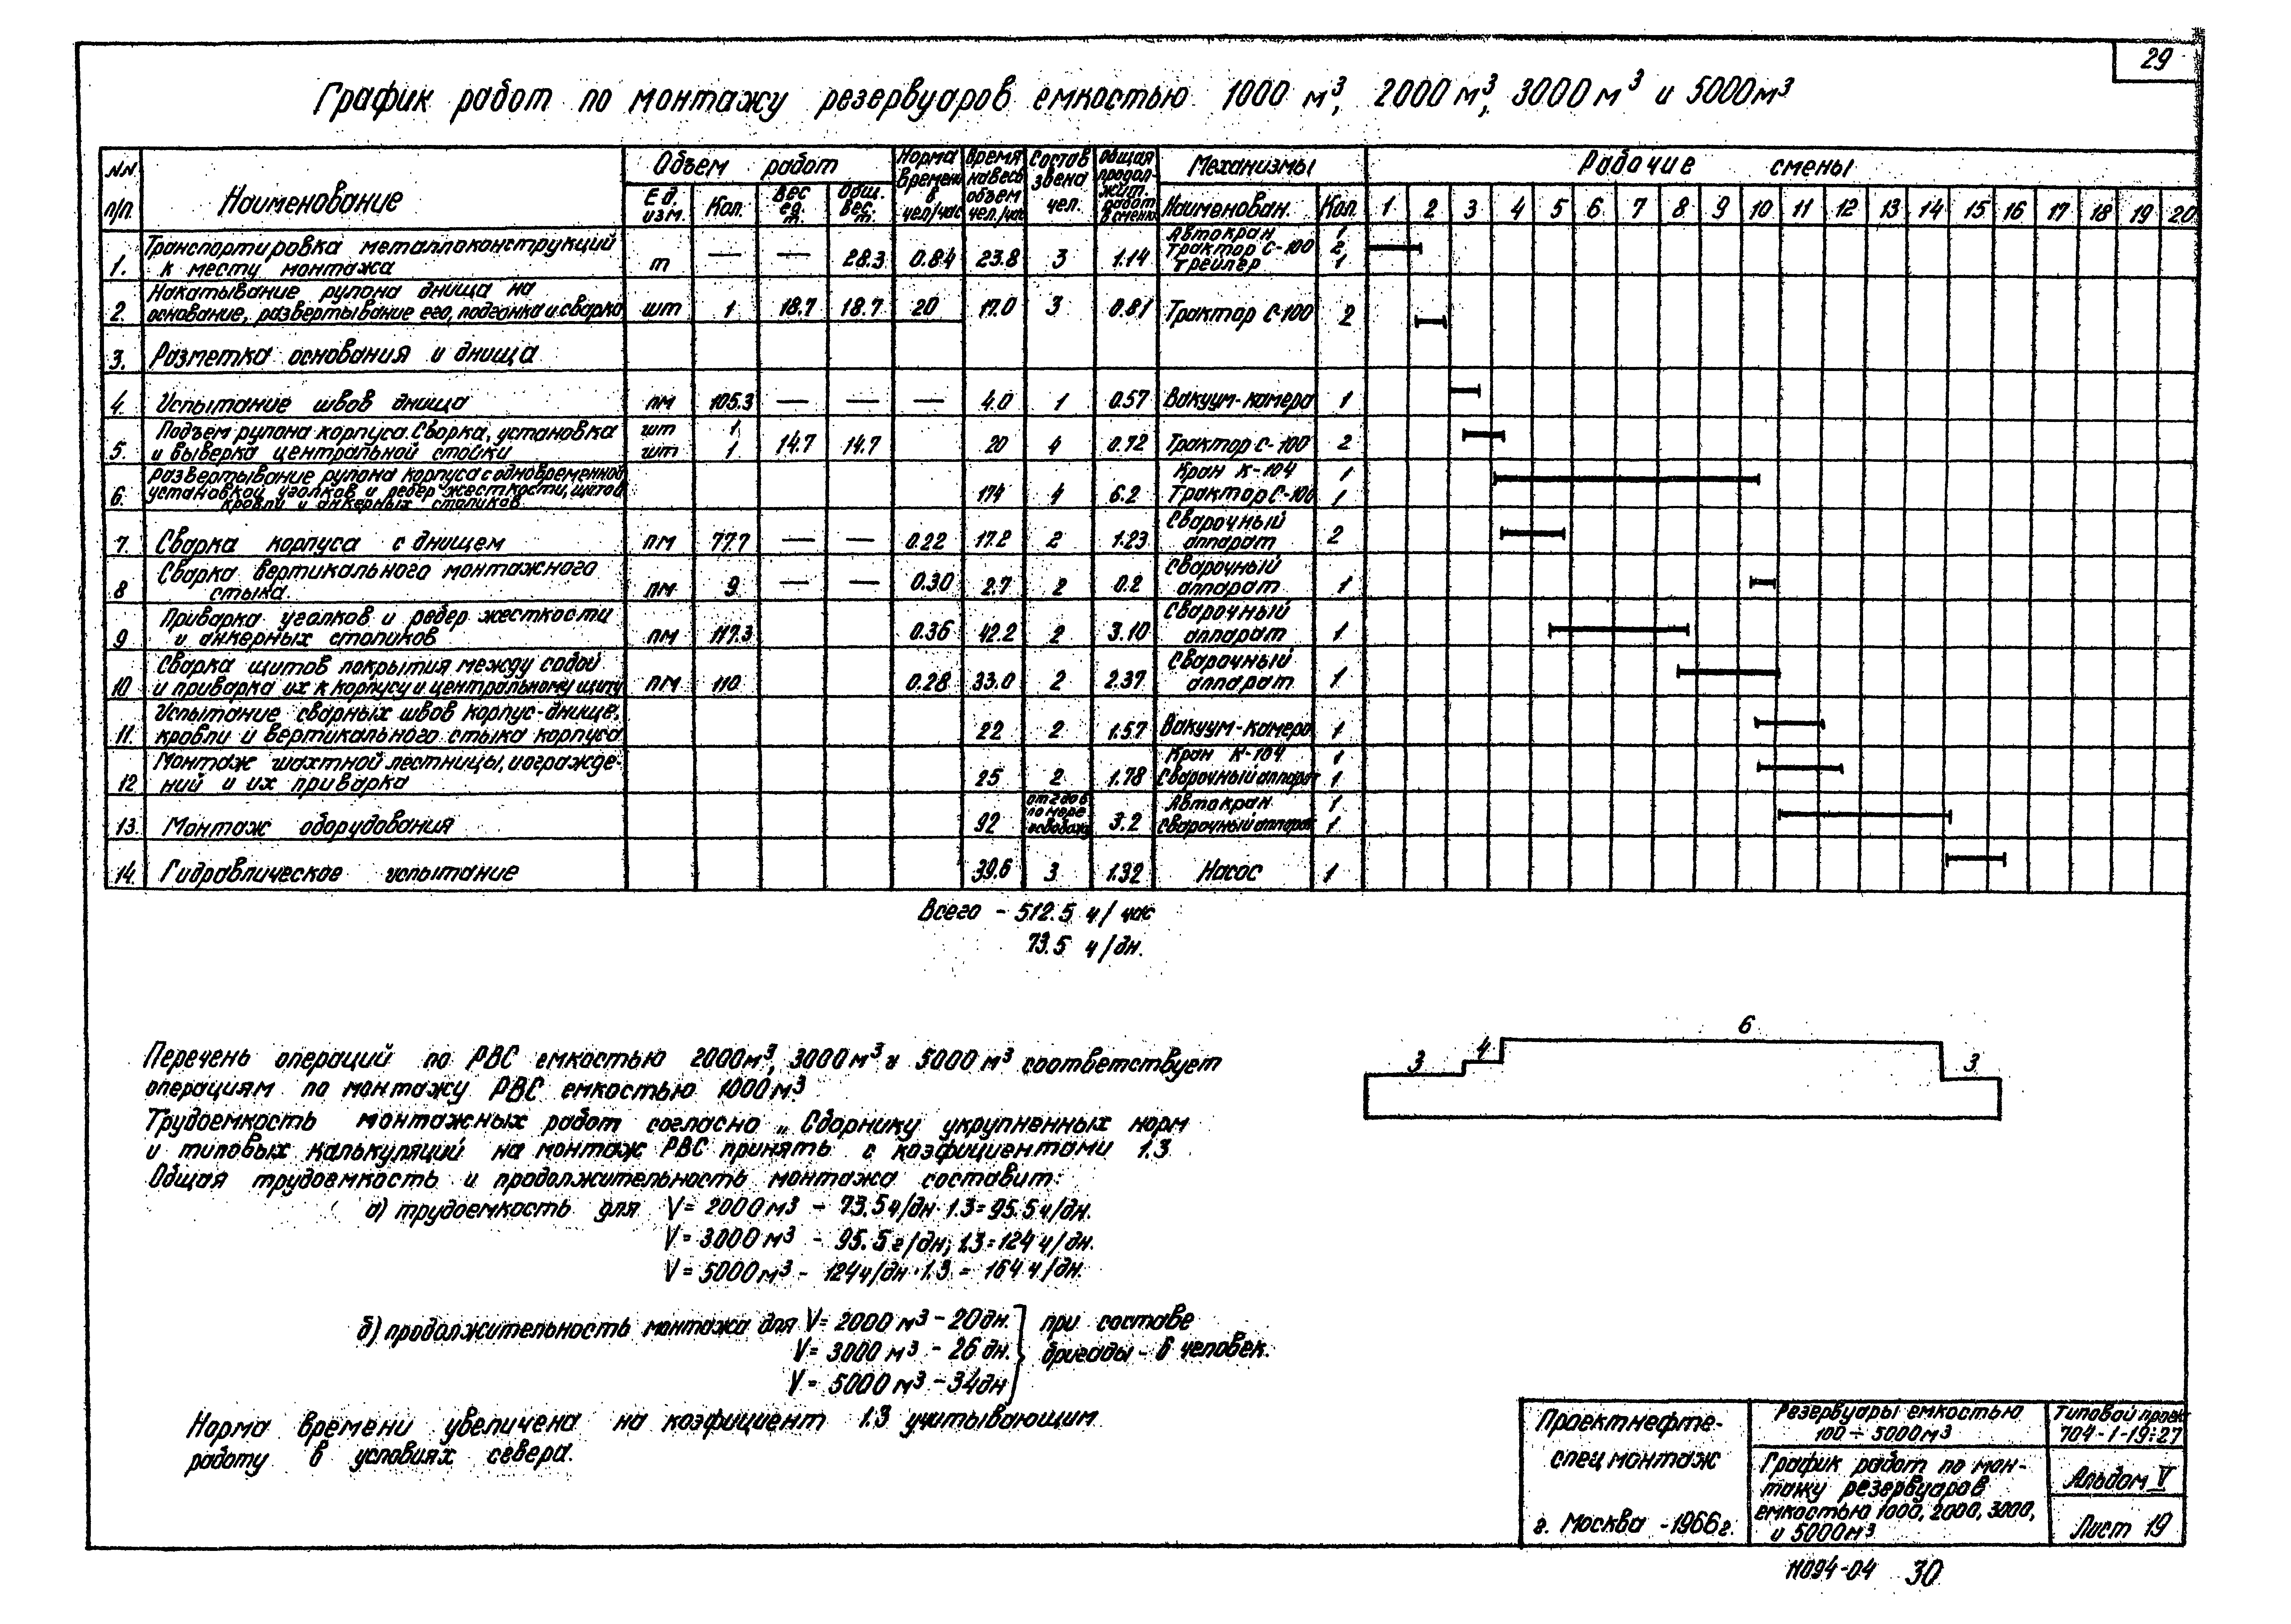 29
График работ по монтажу резервуаров емкостью 1000 м³, 2000 м³, 3000 м³ и 5000 м³
NN п/п. Наименование Объем работ Норма времени в чел/час Время на весь объем чел/час Состав звена чел. Общая продолжит. работ в смена Механизмы Рабочие смены
Ед. изм. Кол. Вес ед. т. Общ. вес. т. Наименован. Кол. 1 2 3 4 5 6 7 8 9 10 11 12 13 14 15 16 17 18 19 20
1. Транспортировка металлоконструкций т — — 28.3 0.84 23.8 3 1.14 Автокран 1
к месту монтажа Трактор С-100 2
Трейлер 1
2. Накатывание рулона днища на
основание, развертывание его, подгонка и сварка шт 1 18.7 18.7 20 17.0 3 0.81 Трактор С-100 2
3. Разметка основания и днища
4. Испытание швов днища пм 105.3 — — — 4.0 1 0.57 Вакуум-камера 1
5. Подъем рулона корпуса. Сварка, установка шт 1
и выверка центральной стойки шт 1 14.7 14.7 20 4 0.72 Трактор С-100 2
6. Развертывание рулона корпуса с одновременной Кран К-104 1
установкой уголков и ребер жесткости, щитов 174 4 6.2 Трактор С-100 1
кровли и анкерных столиков
7. Сварка корпуса с днищем пм 77.7 — — 0.22 17.2 2 1.23 Сварочный аппарат 2
8 Сварка вертикального монтажного
стыка. пм 9 — — 0.30 2.7 2 0.2 Сварочный аппарат 1
9 Приварка уголков и ребер жесткости
и анкерных столиков пм 117.3 0.36 42.2 2 3.10 Сварочный аппарат 1
10 Сварка щитов покрытия между собой
и приварка их к корпусу и центральному щиту пм 110 0.28 33.0 2 2.37 Сварочный аппарат 1
11. Испытание сварных швов корпус-днище,
кровли и вертикального стыка корпуса 22 2 1.57 Вакуум-камера 1
12 Монтаж шахтной лестницы, и огражде- Кран К-104 1
ний и их приварка 25 2 1.78 Сварочный аппарат 1
13. Монтаж оборудования 92 от 2 до 6 по мере 3.2 Автокран 1
Сварочный аппарат 1
14. Гидравлическое испытание 39.6 3 1.32 Насос 1
Всего - 512.5 ч/час
73.5 ч/дн.
3 4 6 3
Перечень операций по РВС емкостью 2000м³, 3000м³ и 5000 м³ соответствует
операциям по монтажу РВС емкостью 1000м³
Трудоемкость монтажных работ согласно „Сборнику укрупненных норм
и типовых калькуляций на монтаж РВС принять с коэфициентами 1.3
Общая трудоемкость и продолжительность монтажа составит:
а) трудоемкость для V= 2000 м³ - 73.5 ч/дн · 1.3 = 95.5 ч/дн.
V= 3000 м³ - 95.5 г/дн; 1.3 = 124 ч/дн.
V= 5000 м³ - 124 ч/дн · 1.3 = 164 ч/дн.
б) продолжительность монтажа для V= 2000 м³ - 20 дн. при составе
V= 3000 м³ - 26 дн. бригады - 6 человек.
V= 5000 м³ - 34 дн
Норма времени увеличена на коэфициент 1.3 учитывающим
работу в условиях севера.
Проектнефте-
спецмонтаж
г. Москва - 1966 г.
Резервуары емкостью
100 ÷ 5000 м³
График работ по мон-
тажу резервуаров
емкостью 1000, 2000, 3000,
и 5000 м³
Типовой проек
704-1-19÷27
Альбом V
Лист 19
11094-04 30